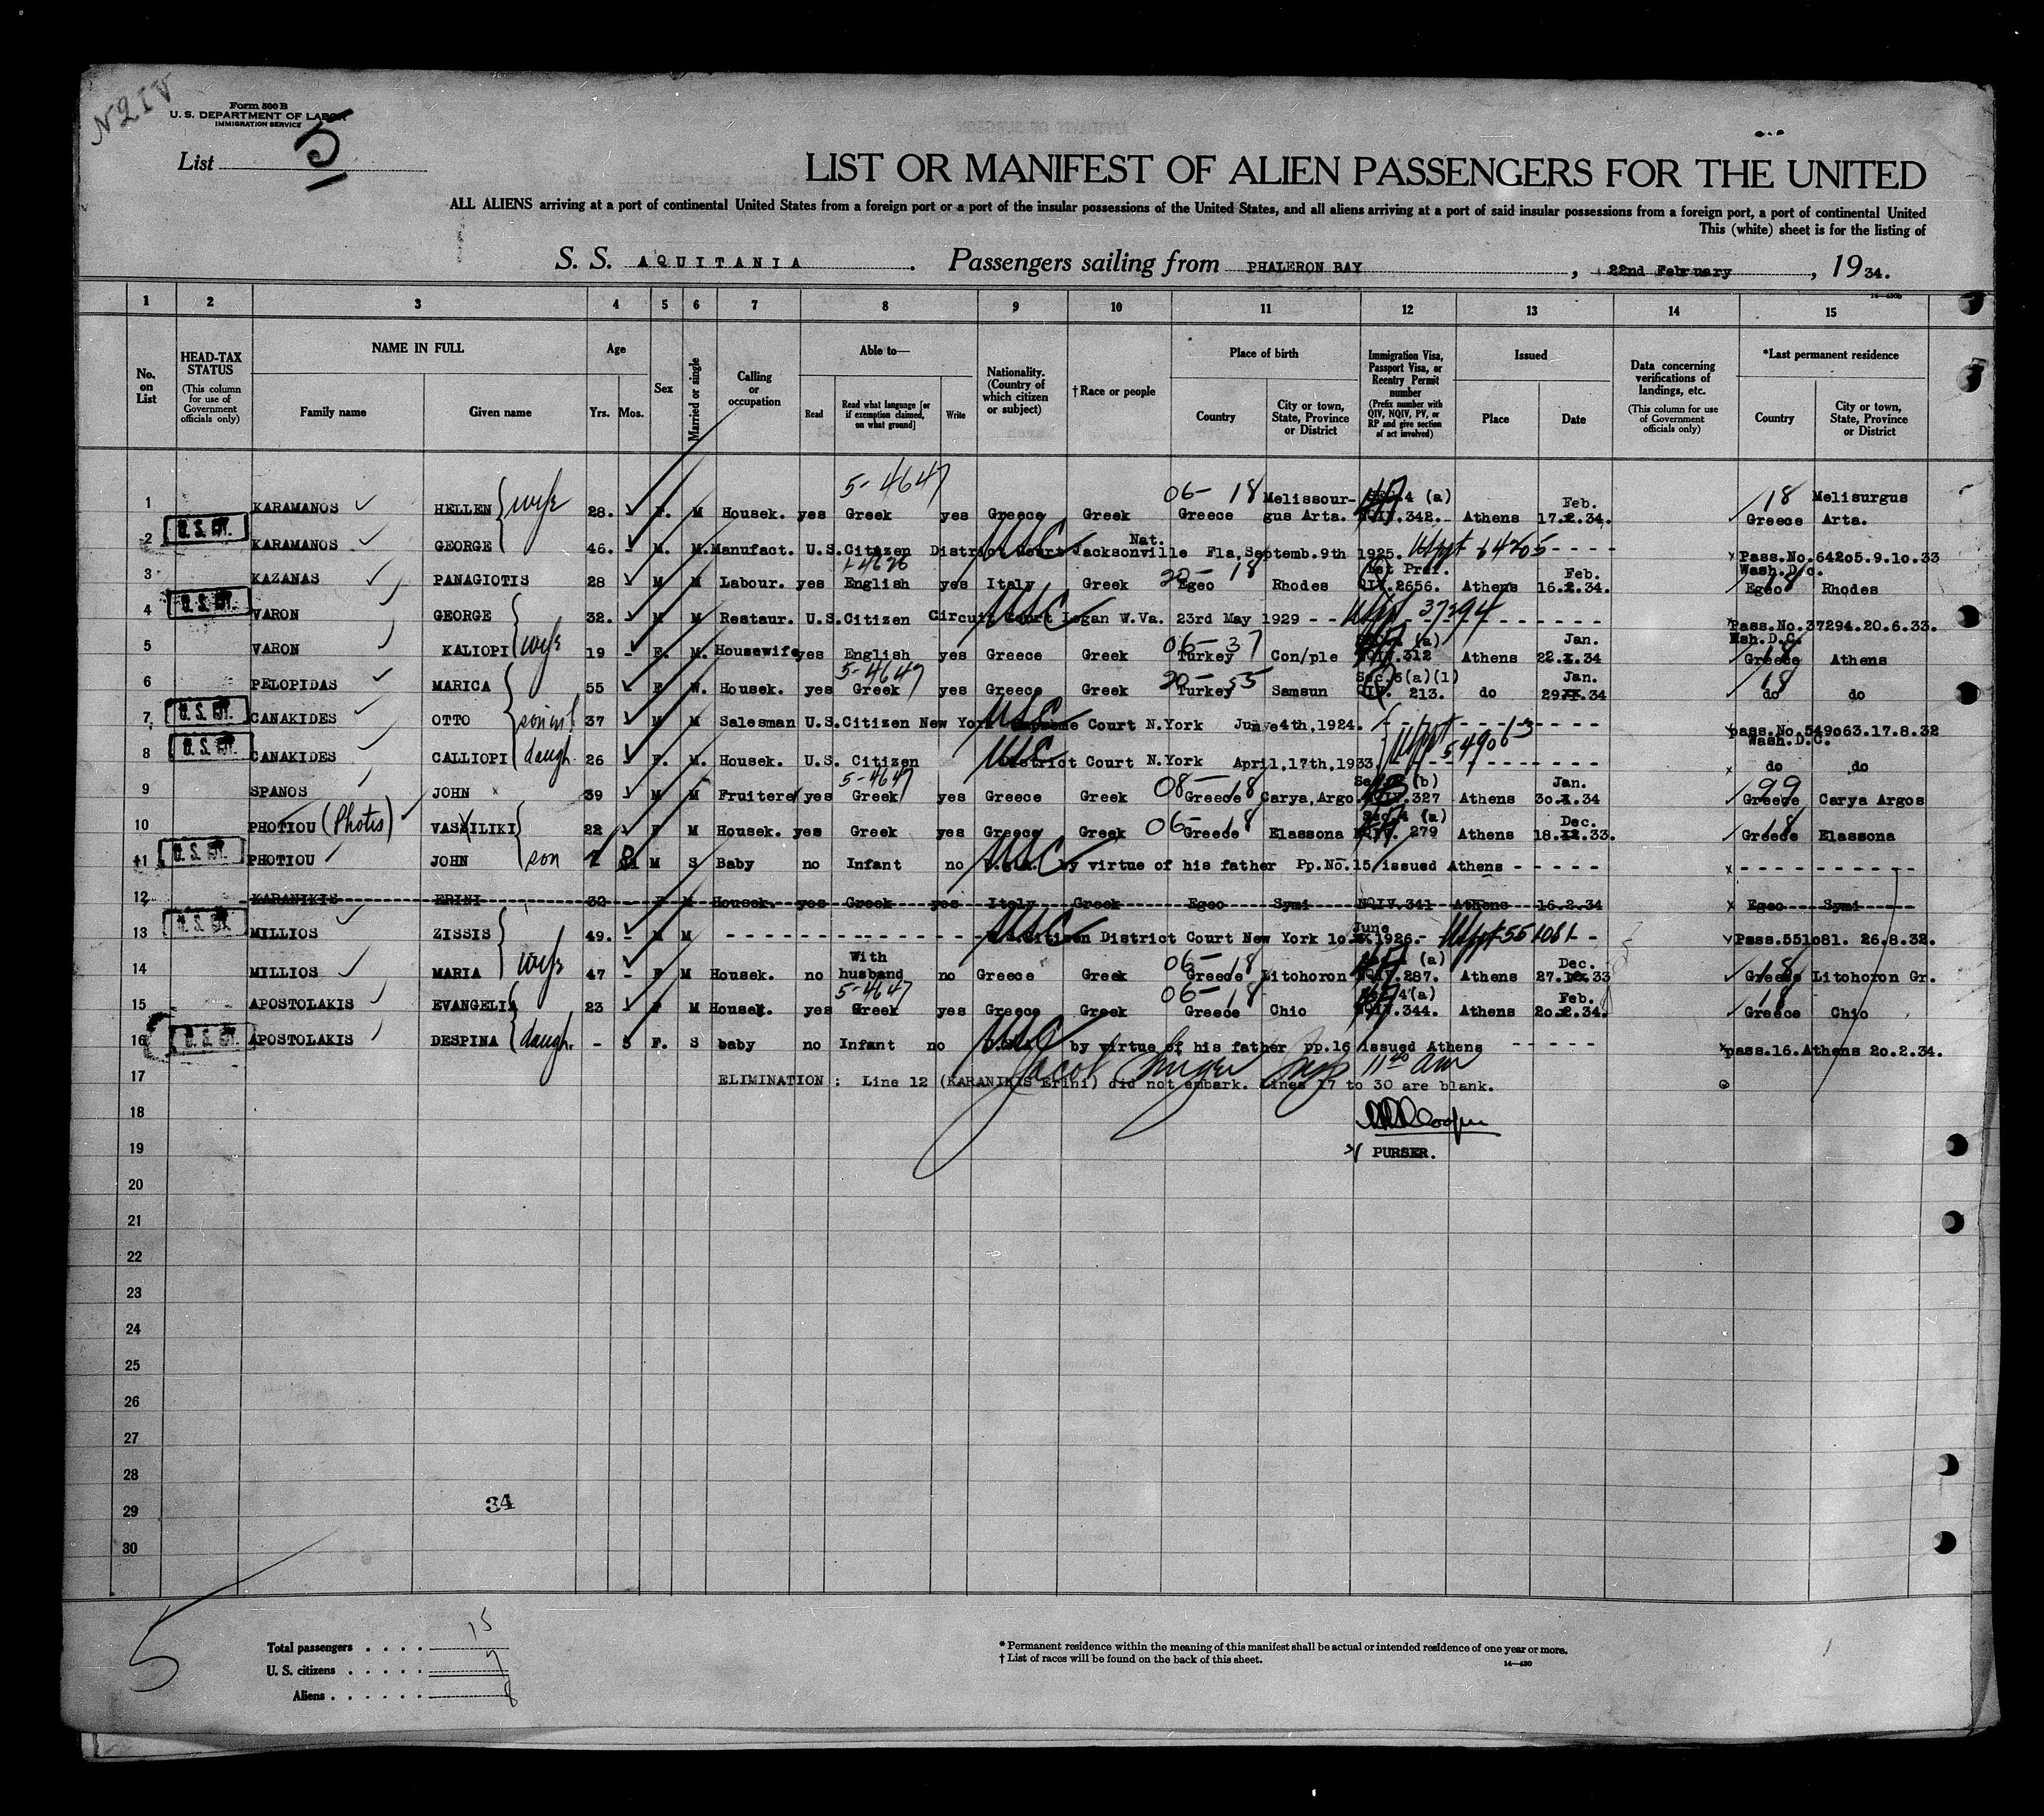 N2IV
Form 500 B
U. S. DEPARTMENT OF LABOR
IMMIGRATION SERVICE
List 5
LIST OR MANIFEST OF ALIEN PASSENGERS FOR THE UNITED
ALL ALIENS arriving at a port of continental United States from a foreign port or a port of the insular possessions of the United States, and all aliens arriving at a port of said insular possessions from a foreign port, a port of continental United
This (white) sheet is for the listing of
S. S. AQUITANIA . Passengers sailing from PHALERON BAY , 22nd February , 19 34.
1 2 3 4 5 6 7 8 9 10 11 12 13 14 15
No. on List
HEAD-TAX STATUS (This column for use of Government officials only)
NAME IN FULL Family name Given name
Age Yrs. Mos.
Sex
Married or single
Calling or occupation
Able to— Read Read what language [or if exemption claimed, on what ground] Write
Nationality. (Country of which citizen or subject)
† Race or people
Place of birth Country City or town, State, Province or District
Immigration Visa, Passport Visa, or Reentry Permit number (Prefix number with QIV, NQIV, PV, or RP and give section of act involved)
Issued Place Date
Data concerning verifications of landings, etc. (This column for use of Government officials only)
*Last permanent residence Country City or town, State, Province or District
5-4647 06- 18 Melissour- Sec.4 (a) Feb. 18 Melisurgus
1 KARAMANOS HELLEN wife 28. F. M Housek. yes Greek yes Greece Greek Greece gus Arta. NQIV.342. Athens 17.2.34. Greece Arta.
Nat.
2 KARAMANOS GEORGE 46. - M. M. Manufact. U.S.Citizen District Court Jacksonville Fla,Septemb.9th 1925. 64205 - - - - x Pass.No.64205.9.10.33
USC 20- 18 1st Pref. Feb. Wash.D.c. 18
3 KAZANAS PANAGIOTIS 28 M M Labour. yes English yes Italy Greek Egeo Rhodes QIV.2656. Athens 16.2.34. Egeo Rhodes
4 VARON GEORGE 32. M M Restaur. U.S.Citizen Circuit Court Logan W.Va. 23rd May 1929 - - 37294 - - - - x Pass.No.37294.20.6.33.
USC 06-37 Sec.4 (a) Jan. Wsh.D.C. 18
5 VARON KALIOPI wife 19 - F. M. Housewife yes English yes Greece Greek Turkey Con/ple NQIV.312 Athens 22.I.34 Greece Athens
5-4647 20-55 Sec.6(a)(1) Jan. 18
6 PELOPIDAS MARICA 55 F W. Housek. yes Greek yes Greece Greek Turkey Samsun QIV. 213. do 29.34 do do
7 CANAKIDES OTTO son in l 37 M M Salesman U.S.Citizen New York Supreme Court N.York June 4th,1924. - - - - pass.No.549063.17.8.32
USC 549063 Wash.D.C.
8 CANAKIDES CALLIOPI daugh. 26 F. M. Housek. U.S. Citizen District Court N.York April,17th,1933. - - - - x do do
USC 5-4647 08- 18 (b) Jan. 99
9 SPANOS JOHN 39 M M Fruiterer yes Greek yes Greece Greek Greece Carya,Argo 327 Athens 30.I.34 Greece Carya Argos
06- 18 Sec.4 (a) Dec. 18
10 PHOTIOU (Photis) VASILIKI 22 F M Housek. yes Greek yes Greece Greek Greece Elassona NQIV. 279 Athens 18.33. Greece Elassona
11 PHOTIOU JOHN son M S Baby no Infant no USC by virtue of his father Pp.No.15 issued Athens - - - - - x - - - -
12 KARANIKIS ERINI 32 F M Housek. yes Greek yes Italy Greek Egeo Symi NQIV.341 Athens 16.2.34 x Egeo Symi
June
13 MILLIOS ZISSIS 49. - M M - - - - U.S.Citizen District Court New York 10.1926.- 551081 - Pass.551081. 26.8.32.
USC With 06- 18 (a) Dec. 18
14 MILLIOS MARIA wife 47 - F M Housek. no husband no Greece Greek Greece Litochoron NQIV.287. Athens 27.33 Greece Litohoron Gr.
5-4647 06- 18 4(a) Feb. 18
15 APOSTOLAKIS EVANGELIA 23 F M Housek. yes Greek yes Greece Greek Greece Chio NQIV.344. Athens 20.2.34. Greece Chio
16 APOSTOLAKIS DESPINA daugh. - 5 F. S baby no Infant no USC by virtue of his father pp.16 issued Athens - - - - - x pass.16.Athens 20.2.34.
Jacob 11 40 am
17 ELIMINATION : Line 12 (KARANIKIS Erini) did not embark. Lines 17 to 30 are blank.
18
Cooper
19 PURSER.
20
21
22
23
24
25
26
27
28
29 34
30
5
Total passengers . . . . 15
U. S. citizens . . . . . 7
Aliens . . . . . . 8
* Permanent residence within the meaning of this manifest shall be actual or intended residence of one year or more.
† List of races will be found on the back of this sheet.
14—430